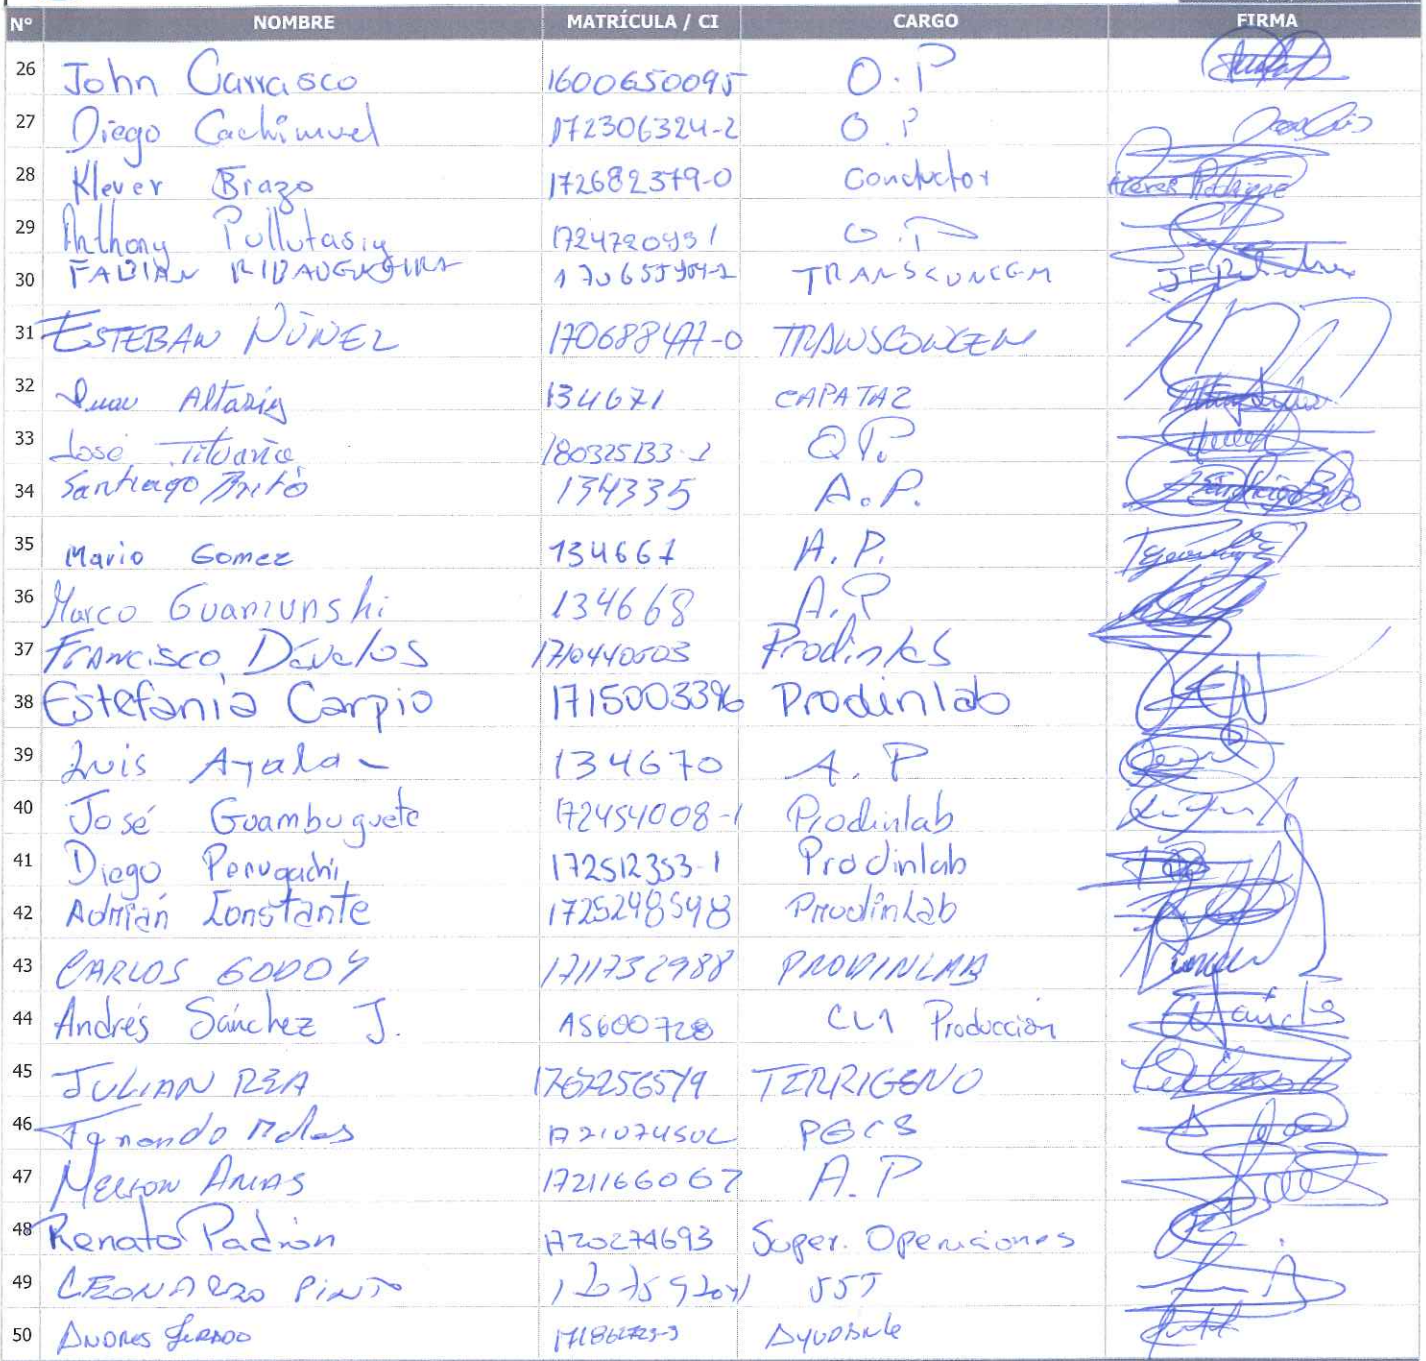 Nº NOMBRE MATRÍCULA / CI CARGO FIRMA
26 John Carrasco 1600650095 O.P
27 Diego Cachimuel 172306324-2 O.P
28 Klever Brazo 172682379-0 Conductor
29 Anthony Pullutasig 1724720931 O.P
30 FABIAN TRANSCONCEM
31 ESTEBAN NÚÑEZ 170688477-0 TRANSCONCEM
32 Juan Altasig 134671 CAPATAZ
33 José Tituaña 180325133-2 O.P.
34 Santiago Brito 134335 A.P.
35 Mario Gomez 134667 A.P.
36 Marco Guamunshi 134668 A.P
37 FRANCISCO Dávalos 1710440503
38 Estefania Carpio 1715003396 Prodinlab
39 Luis Ayala 134670 A.P
40 José Guambuguete 172454008-1 Prodinlab
41 Diego Perugachi 172512353-1 Prodinlab
42 Adrián Constante 1725248548 Prodinlab
43 CARLOS GODOY 1711732988 PRODINLAB
44 Andrés Sánchez J. AS600728 CL1 Producción
45 JULIAN REA TERRIGENO
46 PGCS
47 ARIAS 1721166067 A.P
48 Renato Padrón 1720274693 Super. Operaciones
49 LEONARDO PINTO SST
50 ANDRES JURADO